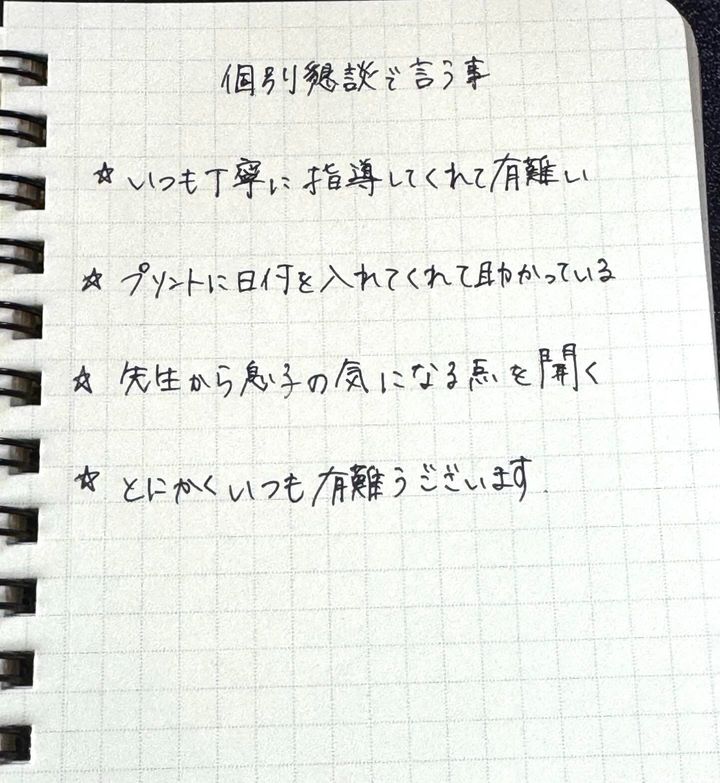 個別懇談で言う事
☆ いつも丁寧に指導してくれて有難い
☆ プリントに日付を入れてくれて助かっている
☆ 先生から息子の気になる点を開く
☆ とにかくいつも有難うございます.